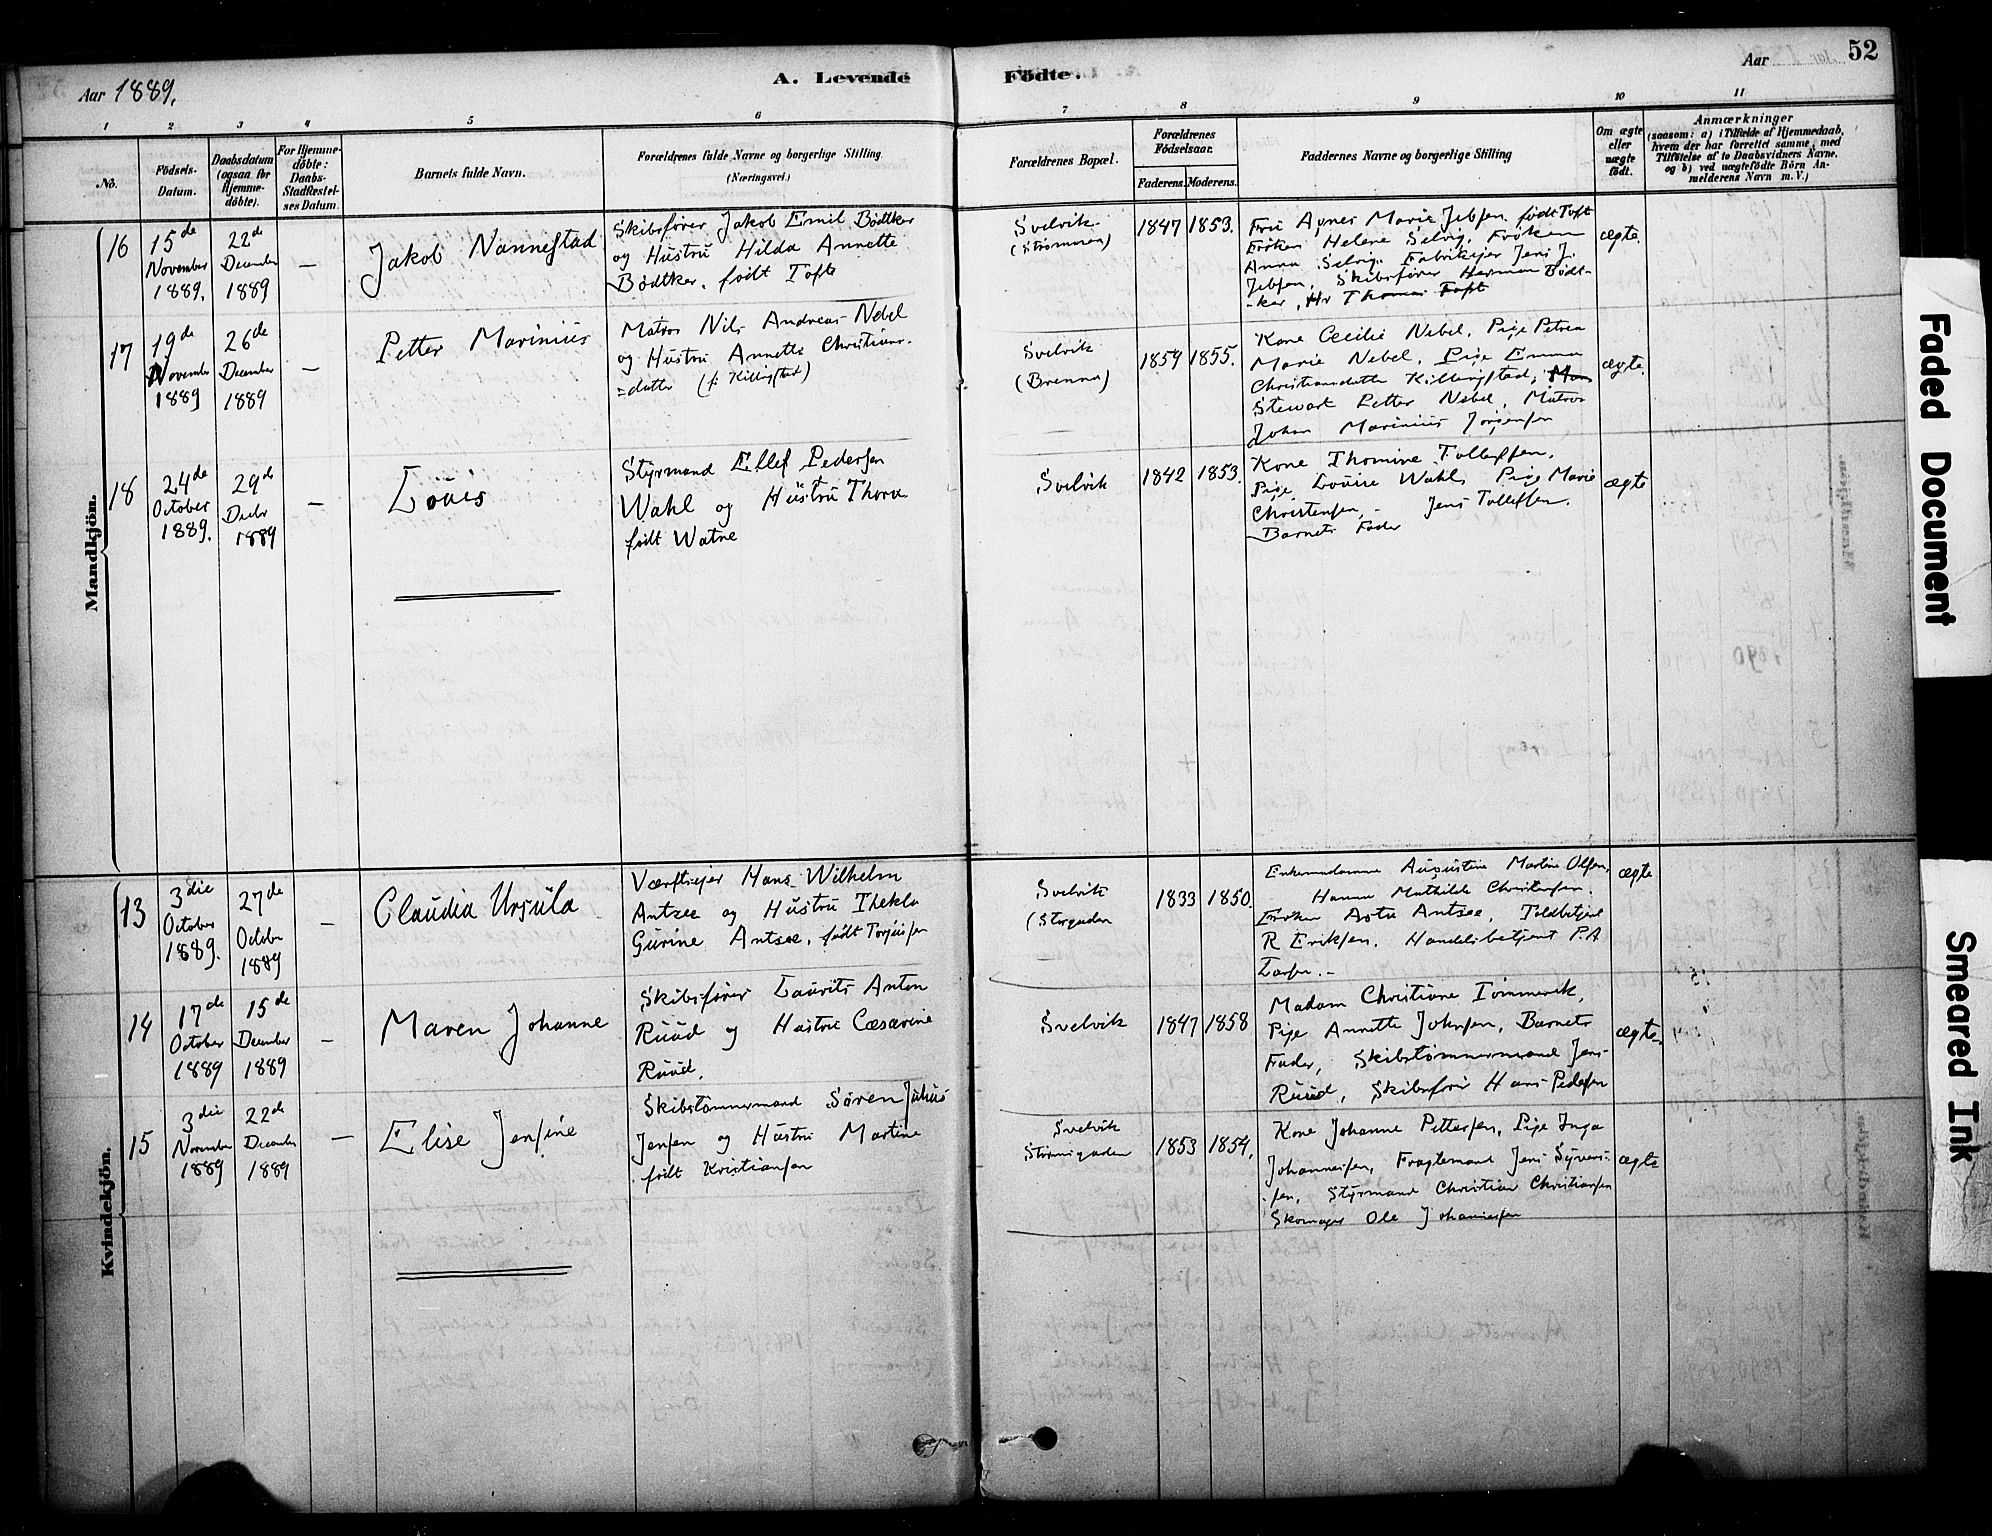 Aar 1889.
A. Levende Födte.
Aar
52
1
2
3
4
5
6
7
8
9
10
11
No.
Födsels-
Datum.
Daabsdatum
(ogsaa for
Hjemme-
döbte).
For Hjemme-
döbte:
Daabs-
Stadfæstel-
ses Datum.
Barnets fulde Navn.
Forældrenes fulde Navne og borgerlige Stilling
(Næringsvei.)
Forældrenes Bopæl.
Forældrenes
Födselsaar.
Faderens.
Moderens.
Faddernes Navne og borgerlige Stilling
Om ægte
eller
uægte
födt.
Anmærkninger
(saasom: a) i Tilfælde af Hjemmedaab,
hvem der har forrettet samme, med
Tilföielse af to Daabsvidners Navne,
og b) ved uægtefödte Börn An-
melderens Navn m. V.)
Mandkjön.
16
15de
November
1889.
22de
December
1889
—
Jakob Nannestad
Skibsfører Jakob Emil Bødtker
og Hustru Hilda Annette
Bødtker, født Tofte
Svelvik
(Strømmen)
1847
1853.
Fru Agnes Marie Jebsen født Toft
Frøken Helene Selvig, Frøken
Anna Selvig. Fabrikejer Jens J.
Jebsen, Skibsfører Herman Bødt-
-ker, Hr Thomas Toft
ægte.
17
19de
November
1889
26de
December
1889
—
Petter Marinius
Matros Nils Andreas Nebel
og Hustru Annette Christians-
=datter (f. Killingstad)
Svelvik
(Brenna)
1859
1855.
Kone Cecilie Nebel, Pige Petrea
Marie Nebel, Pige Emma
Christiansdatter Killingstad,
Stewart Petter Nebel, Matros
Johan Marinius Jørgensen
ægte.
18
24de
October
1889.
29de
Decbr
1889
—
Louis
Styrmand Ellef Pedersen
Wahl og Hustru Thora
født Watne
Svelvik
1842
1853.
Kone Thomine Tollefsen,
Pige Louise Wahl, Pige Marie
Christensen, - Jens Tollefsen.
Barnets Fader
ægte
Kvindekjön.
13
3die
October
1889.
27de
Octobr
1889
—
Claudia Ursula
Værftsejer Hans Wilhelm
Antzee og Hustru Thekla
Gurine Antzee, født Torjusen
Svelvik
(Storgaden
1833
1850.
Enkemadamme Augustine Martine Olsen,
Hanna Mathilde Christensen.
Frøken Asta Antzee, Toldbetjent
R Eriksen. Handelsbetjent P.A
Larsen.-
ægte
14
17de
October
1889
15de
December
1889
—
Maren Johanne
Skibsfører Laurits Anton
Ruud og Hustru Cæsarine
Ruud.
Svelvik
1847
1858
Madam Christiane Tømmervik,
Pige Annette Johnsen, Barnets
Fader, Skibstømmermand Jens
Ruud, Skibsfører Hans Pedersen
ægte.
15
3die
November
1889
22de
December
1889
—
Elise Jensine
Skibstømmermand Søren Julius
Jensen og Hustru Martine
født Kristiansen
Svelvik
Stormgaden
1853
1854.
Kone Johanne Pettersen, Pige Inga
Johannesen, Fragtemand Jens Syvert-
-sen, Styrmand Christian Christiansen
Skomager Ole Johannesen
ægte
Faded Document
Smeared Ink